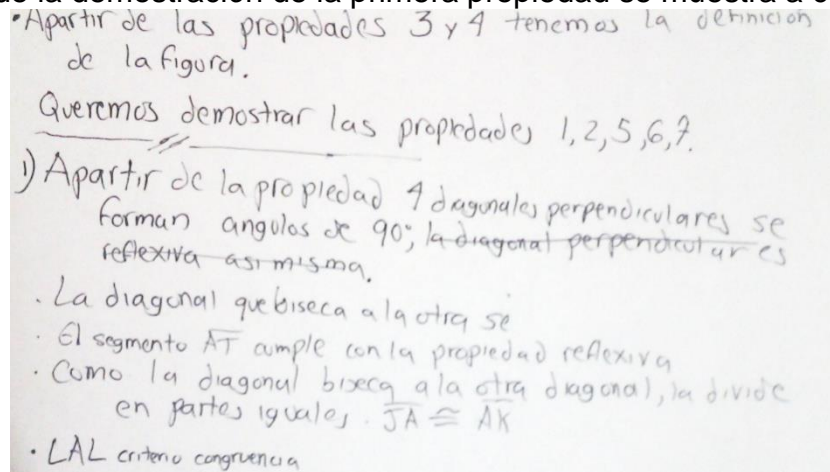 de la demostración de la primera propiedad se muestra a c
• Apartir de las propiedades 3 y 4 tenemos la definición
de la figura.
Queremos demostrar las propiedades 1, 2, 5, 6, 7.
1) Apartir de la propiedad 4 diagonales perpendiculares se
forman angulos de 90°; la diagonal perpendicular es
reflexiva asi misma.
. La diagonal que biseca a la otra se
. El segmento AT cumple con la propiedad reflexiva
. Como la diagonal biseca a la otra diagonal, la divide
en partes iguales. JA ≅ AK
. LAL criterio congruencia